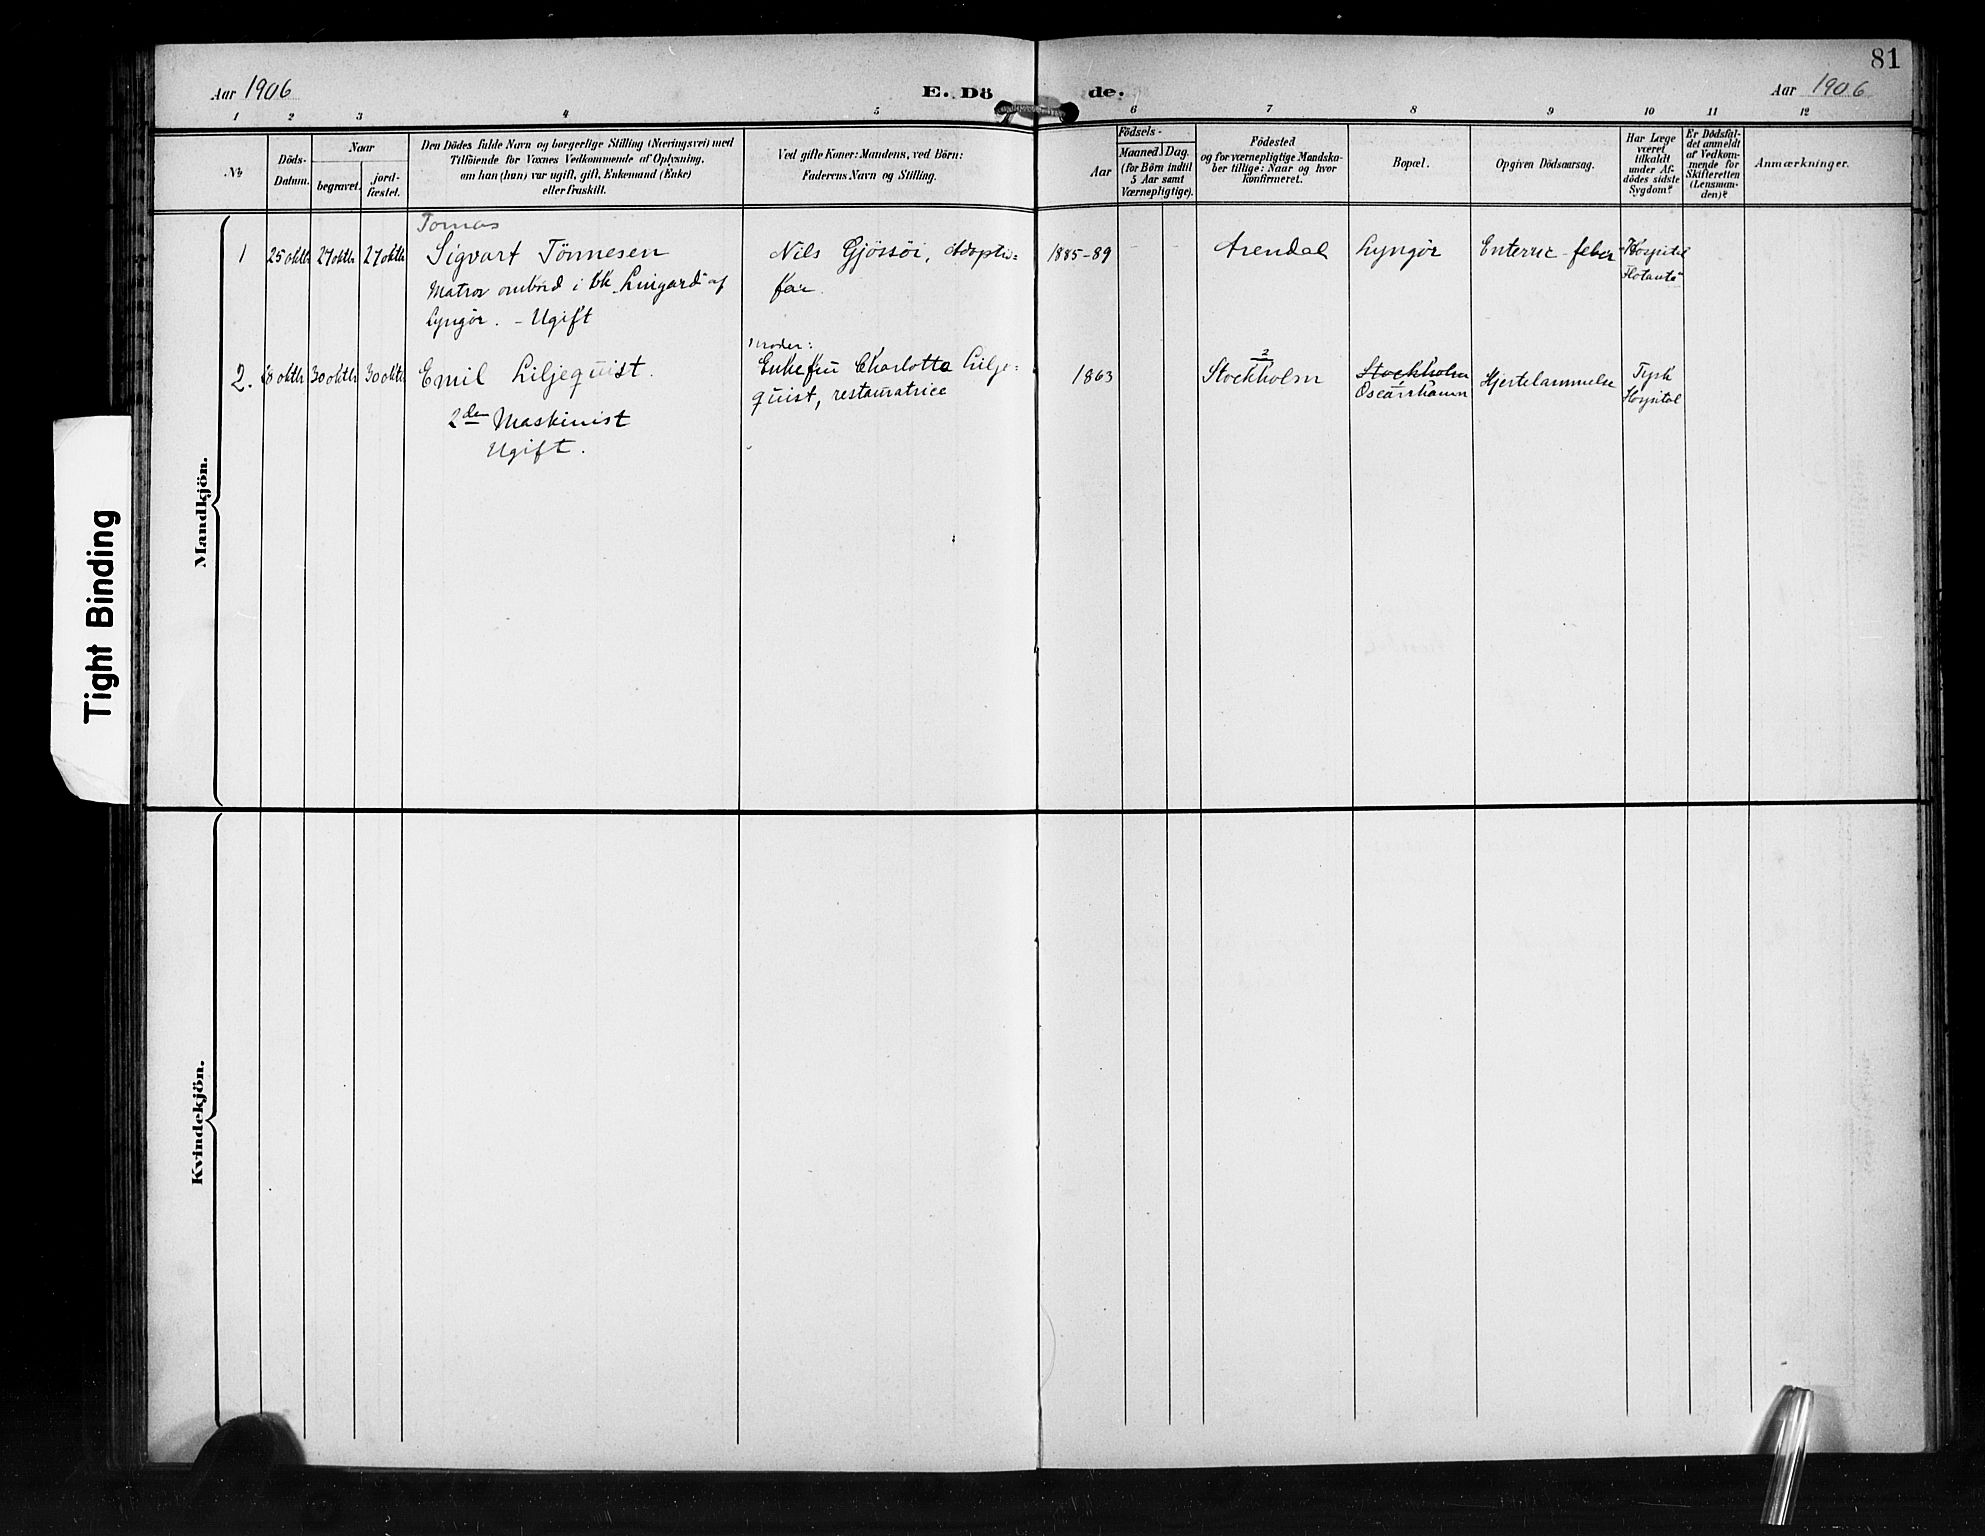 81
Aar 1906
E. Dö
de.
Aar 1906
1 2 3 4 5 6 7 8 9 10 11 12
No
Döds-
Datum.
Naar
begravet.
jord-
fæstet.
Den Dödes fulde Navn og borgerlige Stilling (Næringsvei) med
Tilföiende for Voxnes Vedkommende af Oplysning,
om han (hun) var ugift, gift, Enkemand (Enke)
eller fraskilt.
Ved gifte Koner: Mandens, ved Börn:
Faderens Navn og Stilling.
Födsels-
Aar
Maaned. Dag.
(for Börn indtil
5 Aar samt
Værnepligtige).
Födested
og for værnepligtige Mandska-
ber tillige: Naar og hvor
konfirmeret.
Bopæl.
Opgiven Dödsaarsag.
Har Læge
været
tilkaldt
under Af-
dödes sidste
Sygdom?
Er Dödsfal-
det anmeldt
af Vedkom-
mende for
Skifteretten
(Lensman-
den)?
Anmærkninger.
Mandkjön.
Tomas
1 25 oktb 27 oktb 27 oktb Sigvart Tönnesen
Matros ombord i bk "Lingard" af
Lyngör. - Ugift
Nils Gjössöi, Adoptiv=
far.
1885-89
Arendal
Lyngör
Enterric-feber
Hospital
2. oktb 30 oktb 30 oktb Emil Liljequist.
2den Maskinist
Ugift.
Moder:
Enkefru Charlotta Lilje=
quist, restauratrice
1863
?
Stockholm
Stockholm
Oscarshamn
Hjertelammelse
Tysk
Hospital
Kvindekjön.
Tight Binding